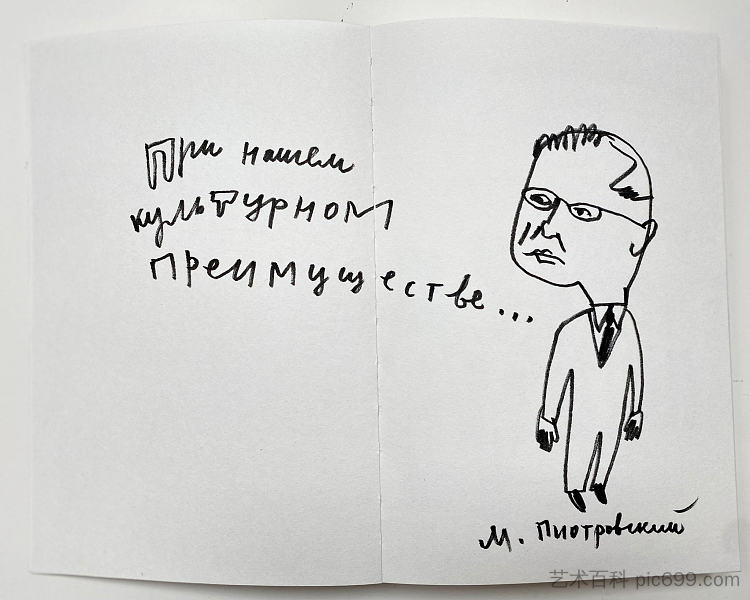 При нашем
культурном
преимуществе...
М. Пиотровский
艺术百科 pic699.com